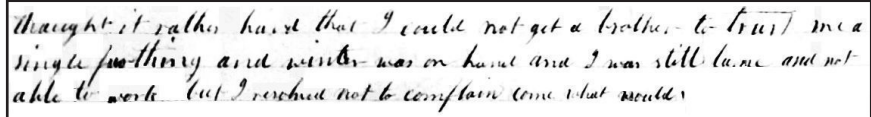 thought it rather hard that I could not get a brother to trust me a
single farthing and winter was on hand and I was still lame and not
able to work but I resolved not to complain come what would